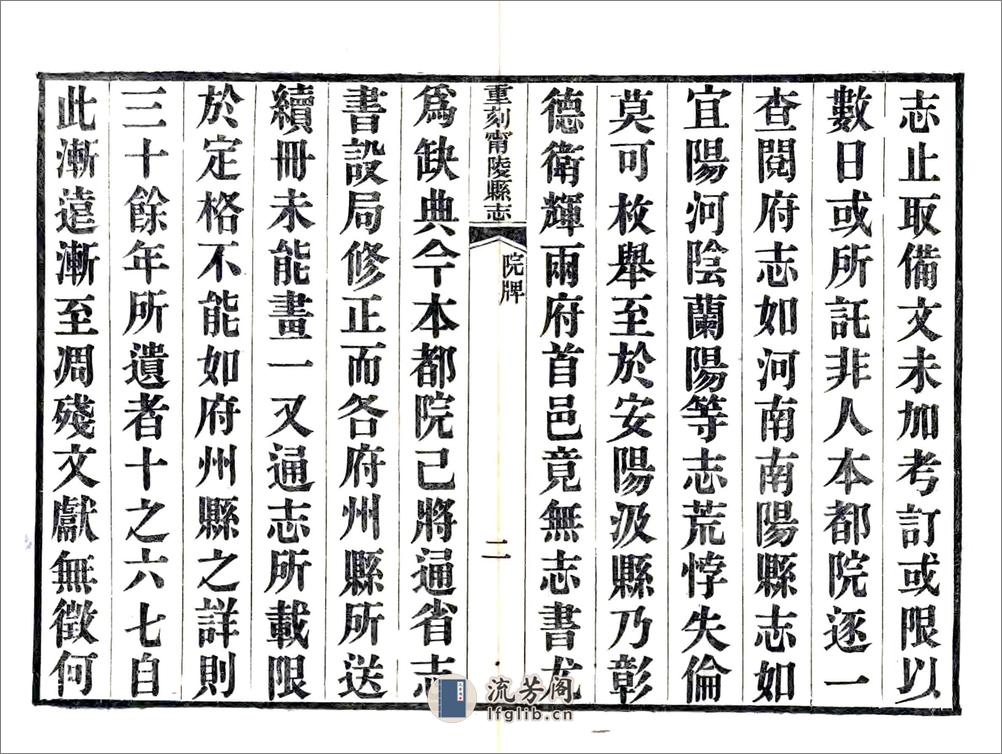 志止取備文未加考訂或限以
數日或所託非人本都院逐一
查閱府志如河南南陽縣志如
宜陽河陰蘭陽等志荒悖失倫
莫可枚舉至於安陽汲縣乃彰
德衛輝兩府首邑竟無志書尤
重刻甯陵縣志
院牌
二
爲缺典今本都院已將通省志
書設局修正而各府州縣所送
續冊未能畫一又通志所載限
於定格不能如府州縣之詳則
三十餘年所遺者十之六七自
此漸遠漸至凋殘文獻無徵何
流芳阁
lfglib.cn